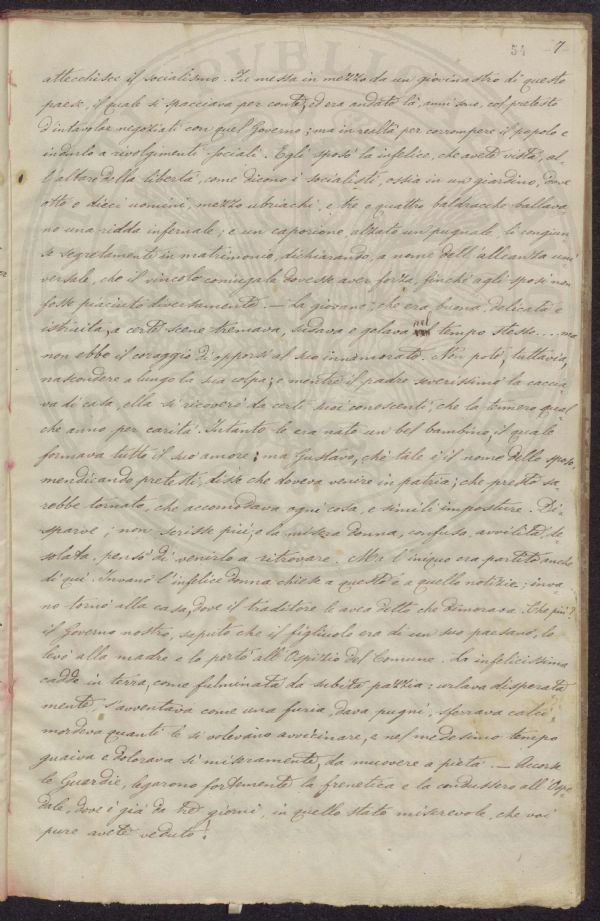 54 7
attecchisce il socialismo. Fu messa in mezzo da un giovinastro di questo
paese, il quale si spacciava per conte, ed era andato là, anni sono, col pretesto
d'intavolar negoziati con quel Governo; ma in realtà per corrompere il popolo e
indurlo a rivolgimenti sociali. Egli sposò la infelice, che avete vista, al-
l'altare della libertà, come dicono i socialisti, ossia in un giardino, dove
otto o dieci uomini, mezzo ubriachi, e tre o quattro baldracche ballava-
no una ridda infernale; e un caporione, alzato un pugnale, li congiun-
se segretamente in matrimonio, dichiarando, a nome dell'alleanza uni-
versale, che il vincolo coniugale dovesse aver forza, finchè agli sposi non
fosse piaciuto diversamente. — La giovane, che era buona, delicata e
istruita, a certe scene tremava, sudava e gelava nel tempo stesso.... ma
non ebbe il coraggio di opporsi al suo innamorato. Non potè, tuttavia,
nascondere a lungo la sua colpa; e mentre il padre severissimo la caccia-
va di casa, ella si ricoverò da certi suoi conoscenti, che la tennero qual-
che anno per carità. Intanto le era nato un bel bambino, il quale
formava tutto il suo amore; ma Gustavo, chè tale è il nome dello sposo,
mendicando pretesti, disse che doveva venire in patria; che presto sa-
rebbe tornato, che accomodava ogni cosa, e simili imposture. Di-
sparve; non scrisse più; e la misera donna, confusa, avvilita, de-
solata, pensò di venirlo a ritrovare. Ma l'iniquo era partito anche
di qui. Invano l'infelice donna chiese a questo e a quello notizie; inva-
no tornò alla casa, dove il traditore le avea detto che dimorava. Che più?
il Governo nostro, saputo che il figliuolo era di un suo paesano, lo
levò alla madre e lo portò all'Ospizio del Comune. La infelicissima
cadde in terra, come fulminata da subita pazzia: urlava disperata-
mente, s'avventava come una furia, dava pugni, sferrava calci,
mordeva quanti le si volevano avvicinare, e nel medesimo tempo
guaiva e dolorava sì miseramente, da muovere a pietà. — Accorse
le Guardie, legarono fortemente la frenetica e la condussero all'Ospe-
dale, dove è già da tre giorni, in quello stato miserevole, che voi
pure avete veduto!